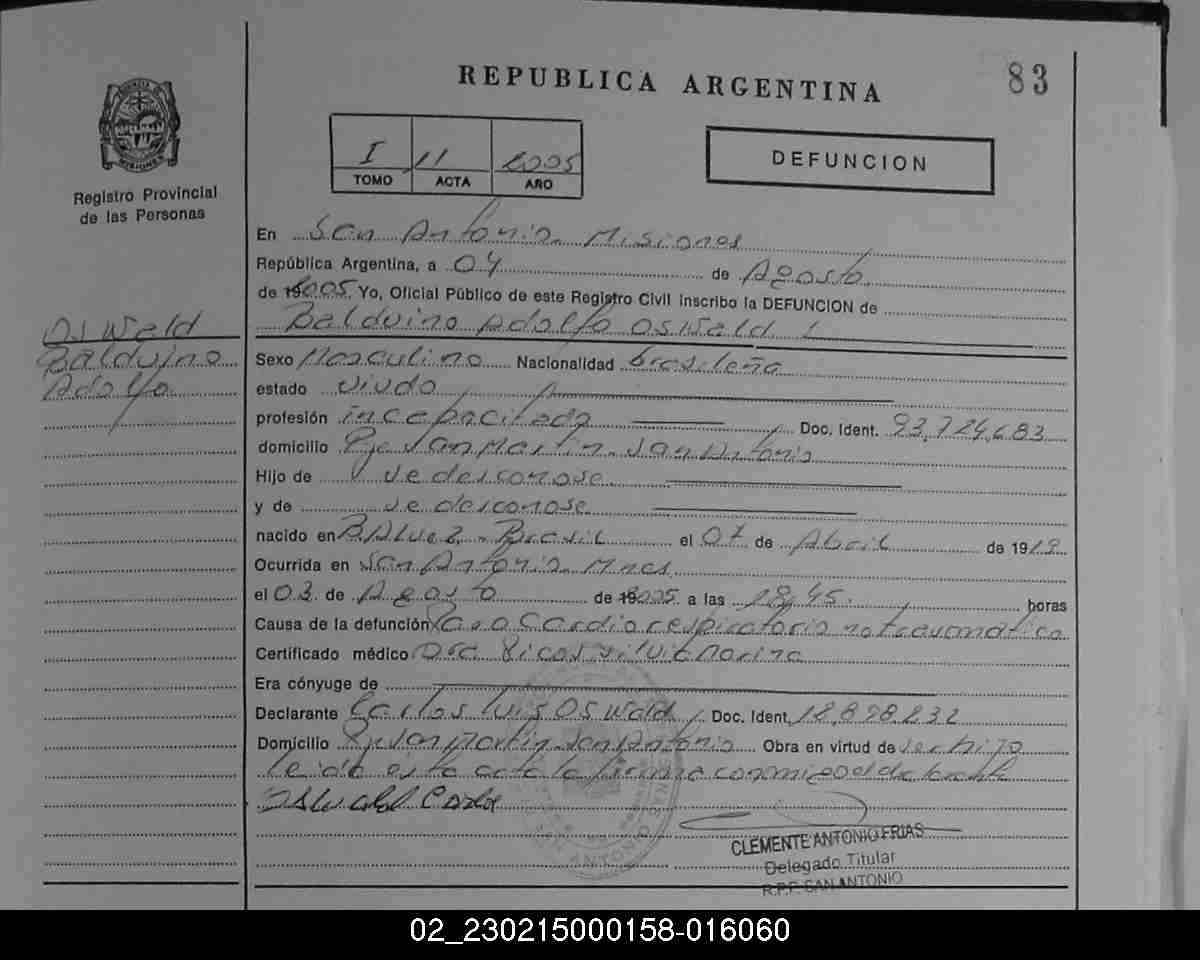 REPUBLICA ARGENTINA
83
I 11 2005
TOMO ACTA AÑO
DEFUNCION
Registro Provincial
de las Personas
En San Antonio Misiones
República Argentina, a 04 de Agosto
de 2005 Yo, Oficial Público de este Registro Civil inscribo la DEFUNCION de
Balduino Adolfo Oswald
Oswald
Balduino
Adolfo
Sexo Masculino Nacionalidad brasileña
estado viudo
profesión incapacitado Doc. Ident. 93,724,683
domicilio San Martin. San Antonio
Hijo de se desconose
y de se desconose
nacido en Brasil el 07 de Abril de 1919
Ocurrida en San Antonio Mnes
el 03 de Agosto de 2005 a las 18,45 horas
Causa de la defunción Paro Cardio respiratorio no traumatico
Certificado médico Dra
Era cónyuge de
Declarante Carlos Luis Oswald Doc. Ident. 18,898,232
Domicilio San Martin San Antonio Obra en virtud de ser hijo
leida esta acta la firma conmigo el declarante
Oswald Carlos
CLEMENTE ANTONIO FRIAS
Delegado Titular
R.P.P. SAN ANTONIO
02_230215000158-016060